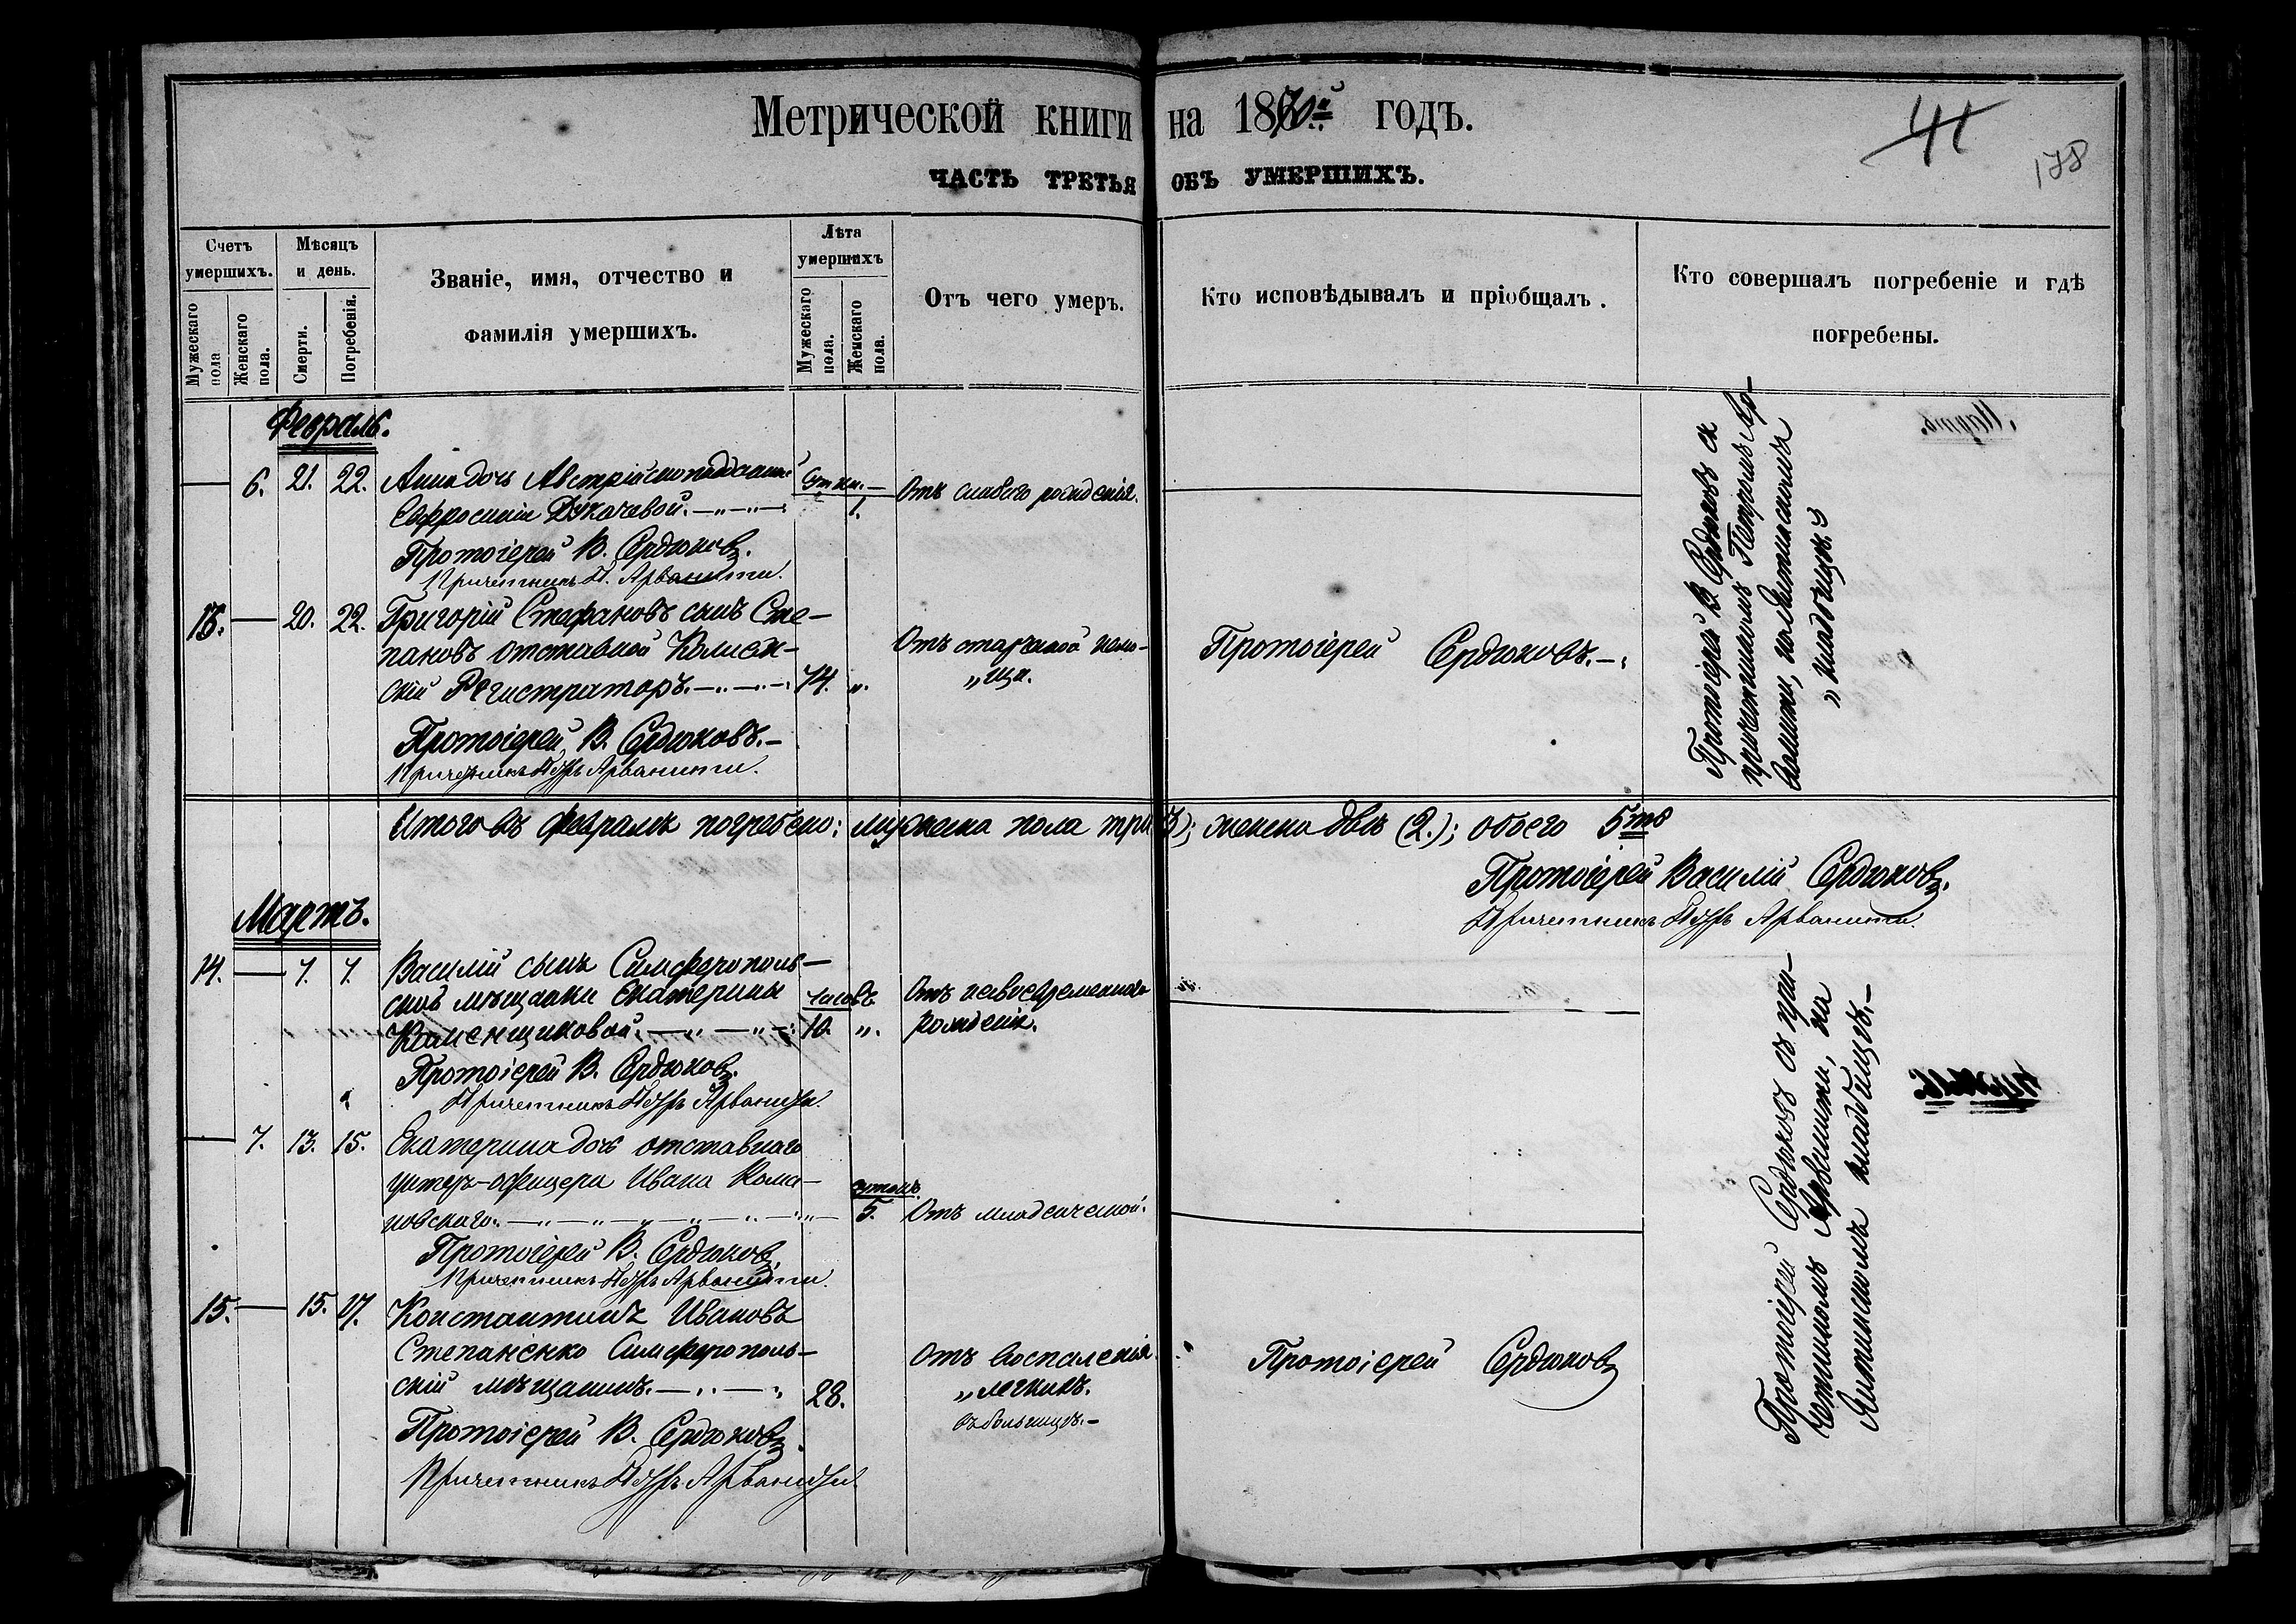 Метрической книги на 1870й годъ.
41
178
ЧАСТЬ ТРЕТЬЯ ОБЪ УМЕРШИХЪ.
Счетъ умершихъ.
Мужескаго пола
Женскаго пола.
Мѣсяцъ и день.
Смерти.
Погребенія.
Званіе, имя, отчество и
фамилія умершихъ.
Лѣта умершихъ
Мужескаго пола.
Женскаго пола.
Отъ чего умеръ.
Кто исповѣдывалъ и пріобщалъ.
Кто совершалъ погребеніе и гдѣ
погребены.
Февраль.
— 6. 21. 22. Анна дочь Австрійскоподданной Сутки. — Отъ слабаго рожденія.
Евфросиніи Дукачевой. 1.
Протоіерей В. Сердюковъ.
Причетникъ П. Арванити.
13. — 20. 22. Григорій Стефановъ сынъ Сте-
пановъ отставной Коллеж-
скій Регистраторъ. 74. „.
Отъ старческой немо-
„щи.
Протоіерей Сердюковъ.
Протоіерей, В. Сердюковъ.
Причетникъ Петръ Арванити.
Протоіерей В. Сердюковъ съ
причетникомъ Петромъ Ар-
ванити, на Ялтинскомъ
„кладбищѣ.
Итого въ февралѣ погребено: мужеска пола три (3); женска двѣ (2.); обоего 5ть
Протоіерей Василій Сердюковъ.
Причетникъ Петръ Арванити.
Мартъ.
14. — 7. 7. Василій сынъ Симферополь-
ской мѣщанки Екатерины часовъ
Каменщиковой. 10. „.
Отъ невоевременнаго
рожденія.
Протоіерей В. Сердюковъ.
Причетникъ Петръ Арванити.
— 7. 13. 15. Екатерина дочь отставнаго
унтеръ-офицера Ивана Кома-
новскаго. 5. Отъ младенческой.
Протоіерей В. Сердюковъ.
Причетникъ Петръ Арванити.
15. — 15. 17. Константинъ Ивановъ
Степаненко Симферополь-
скій мѣщанинъ. 28.
Отъ воспаленія
„легкихъ.
въ больницѣ.
Протоіерей Сердюковъ
Протоіерей В. Сердюковъ.
Причетникъ Петръ Арванити.
Протоіерей Сердюковъ съ при-
четникомъ Арванити, на
Ялтинскомъ кладбищѣ.